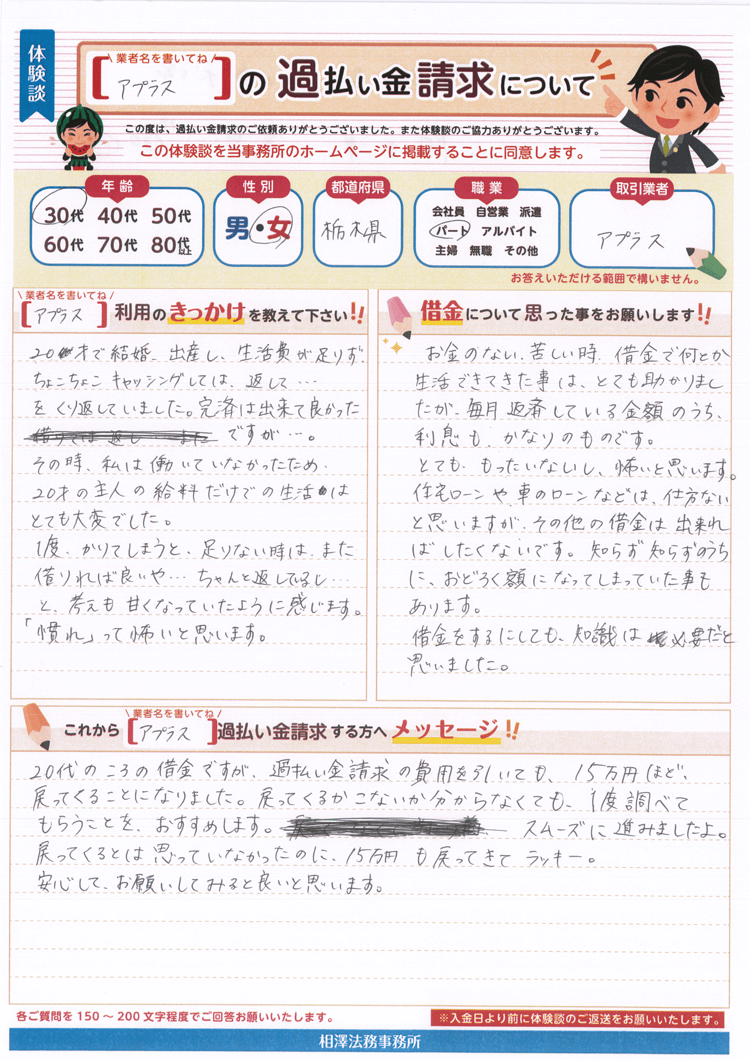 体験談
業者名を書いてね
【アプラス】の過払い金請求について
この度は、過払い金請求のご依頼ありがとうございました。また体験談のご協力ありがとうございます。
この体験談を当事務所のホームページに掲載することに同意します。
年齢
30代 40代 50代
60代 70代 80代以上
性別
男・女
都道府県
栃木県
職業
会社員 自営業 派遣
パート アルバイト
主婦 無職 その他
取引業者
アプラス
お答えいただける範囲で構いません。
業者名を書いてね
【アプラス】利用のきっかけを教えて下さい!!
20才で結婚、出産し、生活費が足りず、
ちょこちょこキャッシングしては、返して…
をくり返していました。完済は出来て良かった
ですが…。
その時、私は働いていなかったため、
20才の主人の給料だけでの生活は
とても大変でした。
1度、かりてしまうと、足りない時は、また
借りれば良いや…ちゃんと返してるし…
と、考えも甘くなっていたように感じます。
「慣れ」って怖いと思います。
借金について思った事をお願いします!!
お金のない、苦しい時、借金で何とか
生活できてきた事は、とても助かりまし
たが、毎月返済している金額のうち、
利息も、かなりのものです。
とても、もったいないし、怖いと思います。
住宅ローンや、車のローンなどは、仕方ない
と思いますが、その他の借金は出来れ
ばしたくないです。知らず知らずのうち
に、おどろく額になってしまっていた事も
あります。
借金をするにしても、知識は必要だと
思いました。
業者名を書いてね
これから【アプラス】過払い金請求する方へメッセージ!!
20代のころの借金ですが、過払い金請求の費用を引いても、15万円ほど、
戻ってくることになりました。戻ってくるかこないか分からなくても、1度調べて
もらうことを、おすすめします。スムーズに進みましたよ。
戻ってくるとは思っていなかったのに、15万円も戻ってきてラッキー。
安心して、お願いしてみると良いと思います。
各ご質問を150~200文字程度でご回答お願いいたします。
※入金日より前に体験談のご返送をお願いいたします。
相澤法務事務所